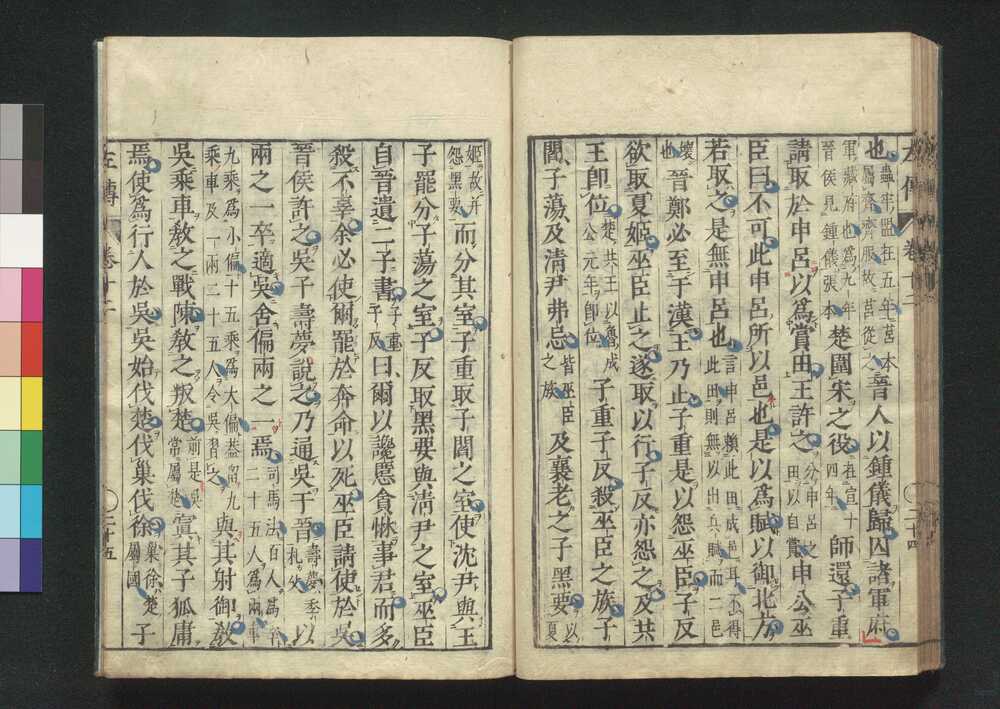 左傳 卷十二 二十四
也蟲牢盟在五年莒本屬齊齊服故莒從之晉人以鍾儀歸囚諸軍府
軍藏府也爲九年晉侯見鍾儀張本楚圍宋之役在宣十四年師還子重
請取於申呂以爲賞田王許之分申呂之田以自賞申公巫
臣曰不可此申呂所以邑也是以爲賦以御北方
若取之是無申呂也言申呂賴此田成邑耳不得此田則無以出兵賦而二邑
壞也晉鄭必至于漢王乃止子重是以怨巫臣子反
欲取夏姬巫臣止之遂取以行子反亦怨之及共
王即位楚共王以魯成公元年即位子重子反殺巫臣之族子
閻子蕩及清尹弗忌皆巫臣之族及襄老之子黑要以夏
姬故并怨黑要而分其室子重取子閻之室使沈尹與王
子罷分子蕩之室子反取黑要與清尹之室巫臣
自晉遺二子書子重子反曰爾以讒慝貪惏事君而多
殺不辜余必使爾罷於奔命以死巫臣請使於吳
晉侯許之吳子壽夢說之乃通吳于晉壽夢季札父以
兩之一卒適吳舍偏兩之一焉司馬法百人爲卒二十五人爲兩車
九乘爲小偏十五乘爲大偏蓋留九乘車及一兩二十五人令吳習之與其射御教
吳乘車教之戰陳教之叛楚前是吳常屬楚寘其子狐庸
焉使爲行人於吳吳始伐楚伐巢伐徐巢徐楚屬國子
左傳 卷十二 二十五